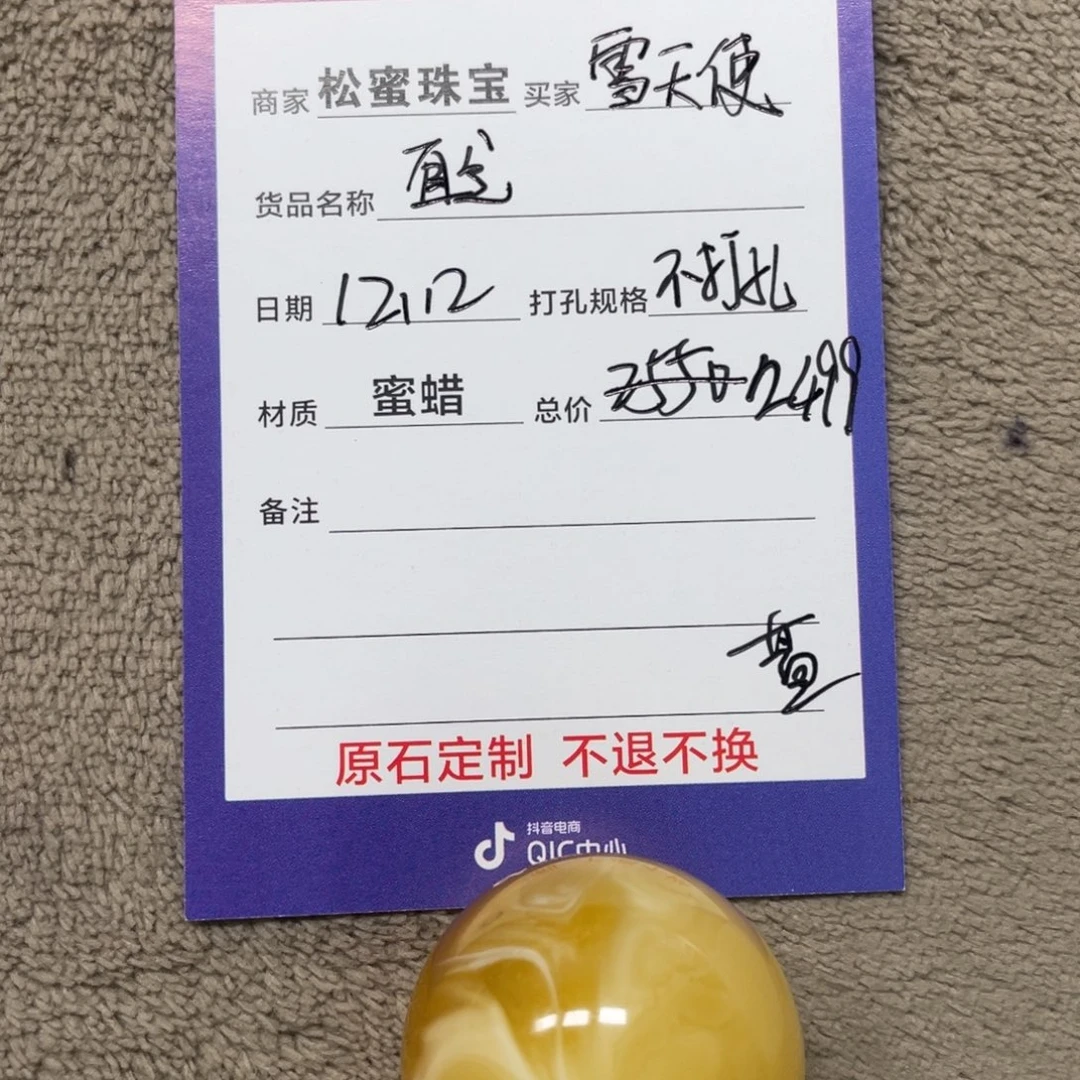 商家 松蜜珠宝 买家 雪天使
货品名称 直发
日期 12.12 打孔规格 不打孔
材质 蜜蜡 总价 2550 2499
备注
原石定制 不退不换
抖音电商
QIC中心